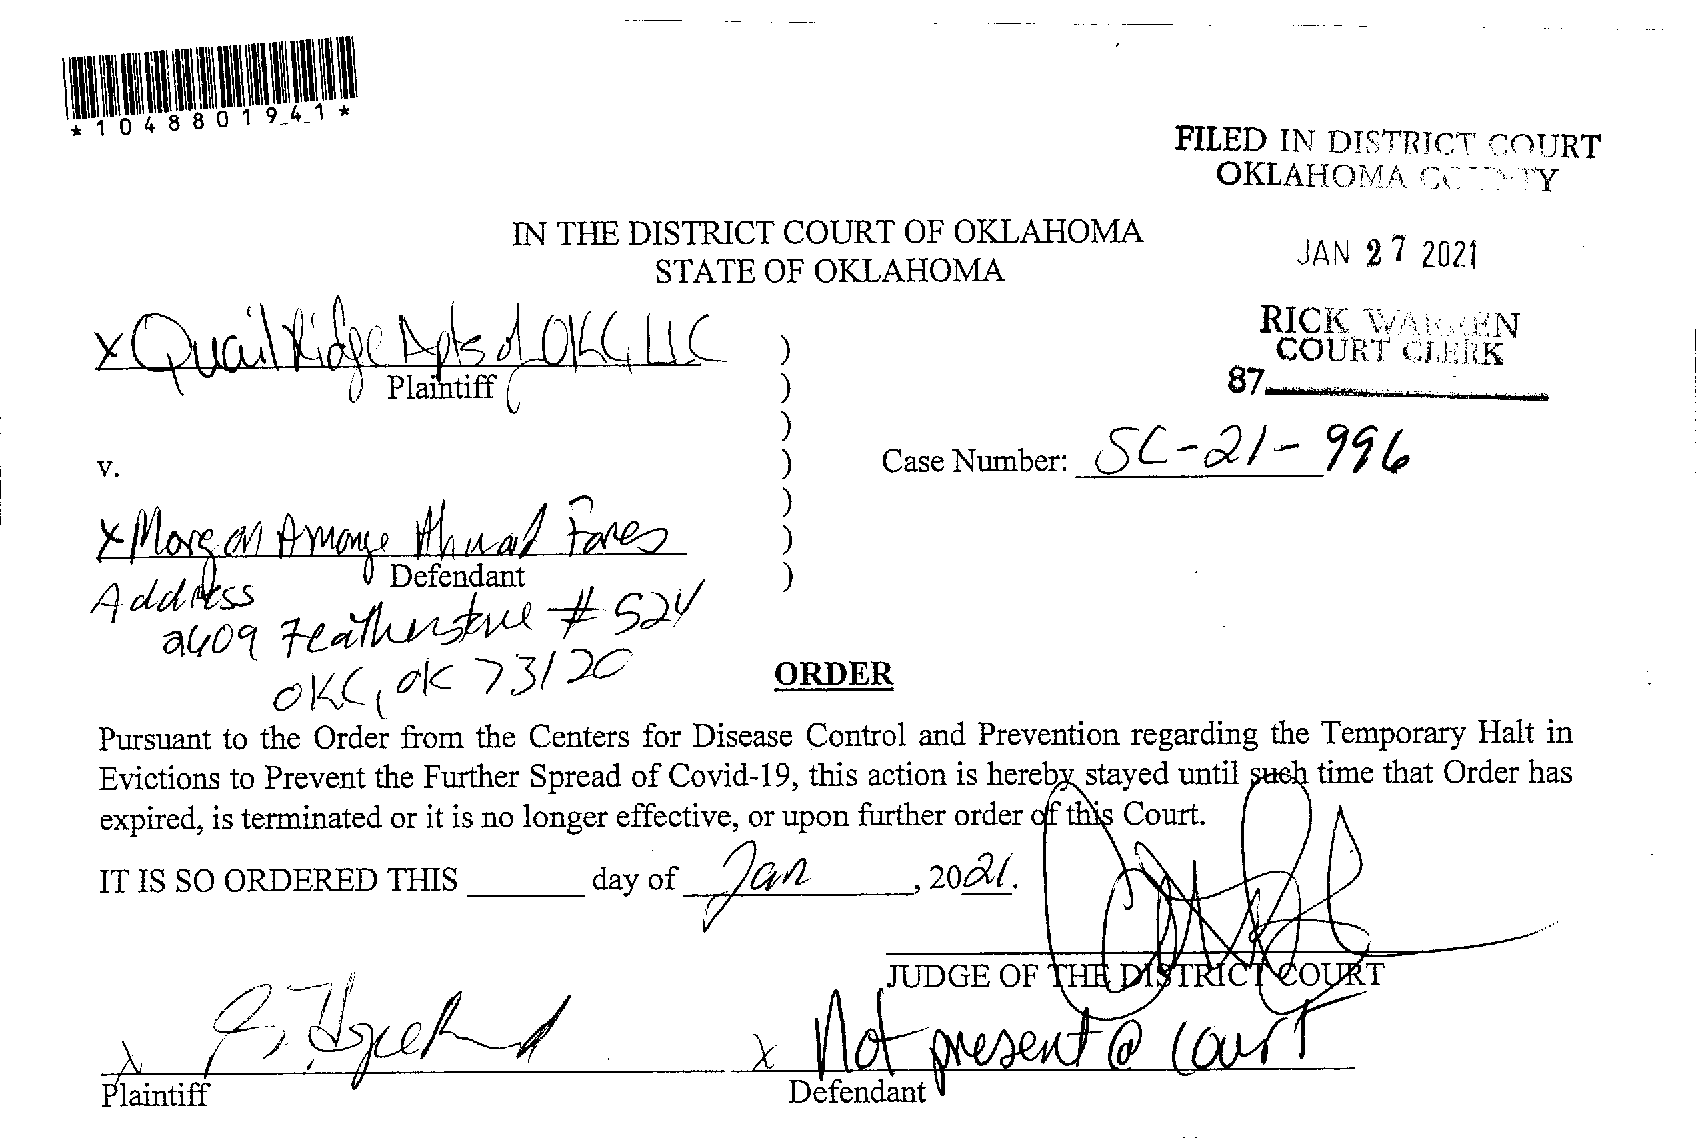 *10488019_4_1*
FILED IN DISTRICT COURT
OKLAHOMA COUNTY
JAN 27 2021
RICK WARREN
COURT CLERK
87
IN THE DISTRICT COURT OF OKLAHOMA
STATE OF OKLAHOMA
x Quail Ridge Apts of OKC, LLC )
Plaintiff )
)
v. ) Case Number: SC-21-996
)
x Morgan Amonge Ahmad Fares )
Defendant )
Address
2609 Featherstone # 524
OKC, OK 73120
ORDER
Pursuant to the Order from the Centers for Disease Control and Prevention regarding the Temporary Halt in
Evictions to Prevent the Further Spread of Covid-19, this action is hereby stayed until such time that Order has
expired, is terminated or it is no longer effective, or upon further order of this Court.
IT IS SO ORDERED THIS ______ day of Jan, 2021.
JUDGE OF THE DISTRICT COURT
x
Plaintiff
x Not present @ court
Defendant